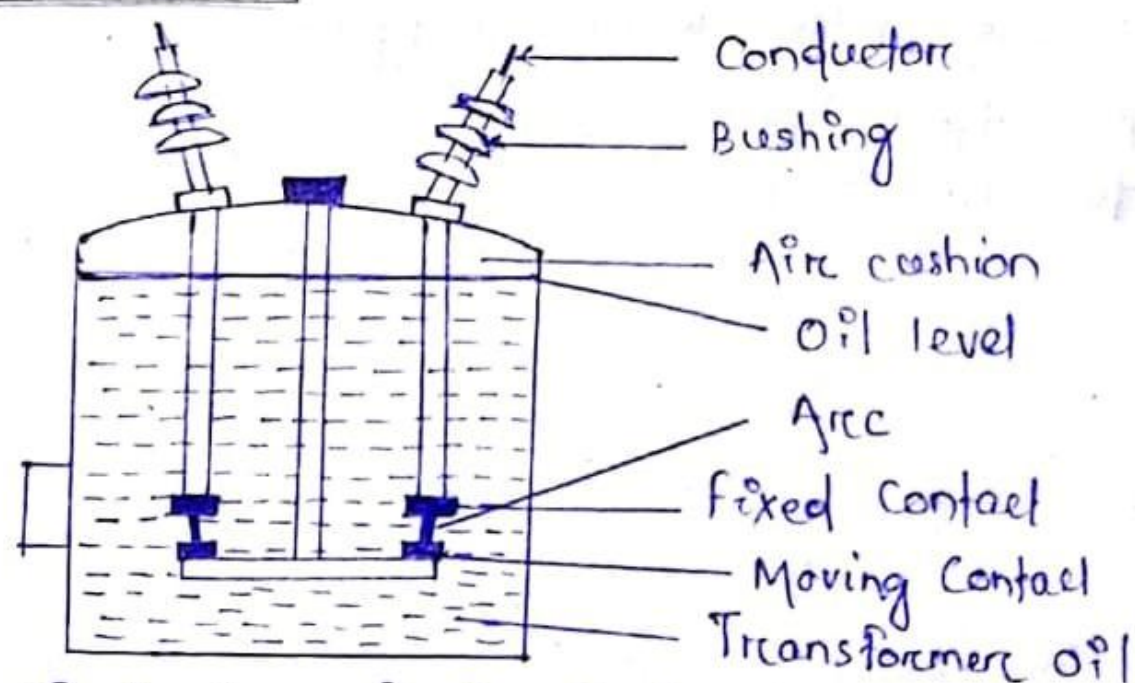 Conductor
Bushing
Air cushion
Oil level
Arc
Fixed Contact
Moving Contact
Transformer Oil